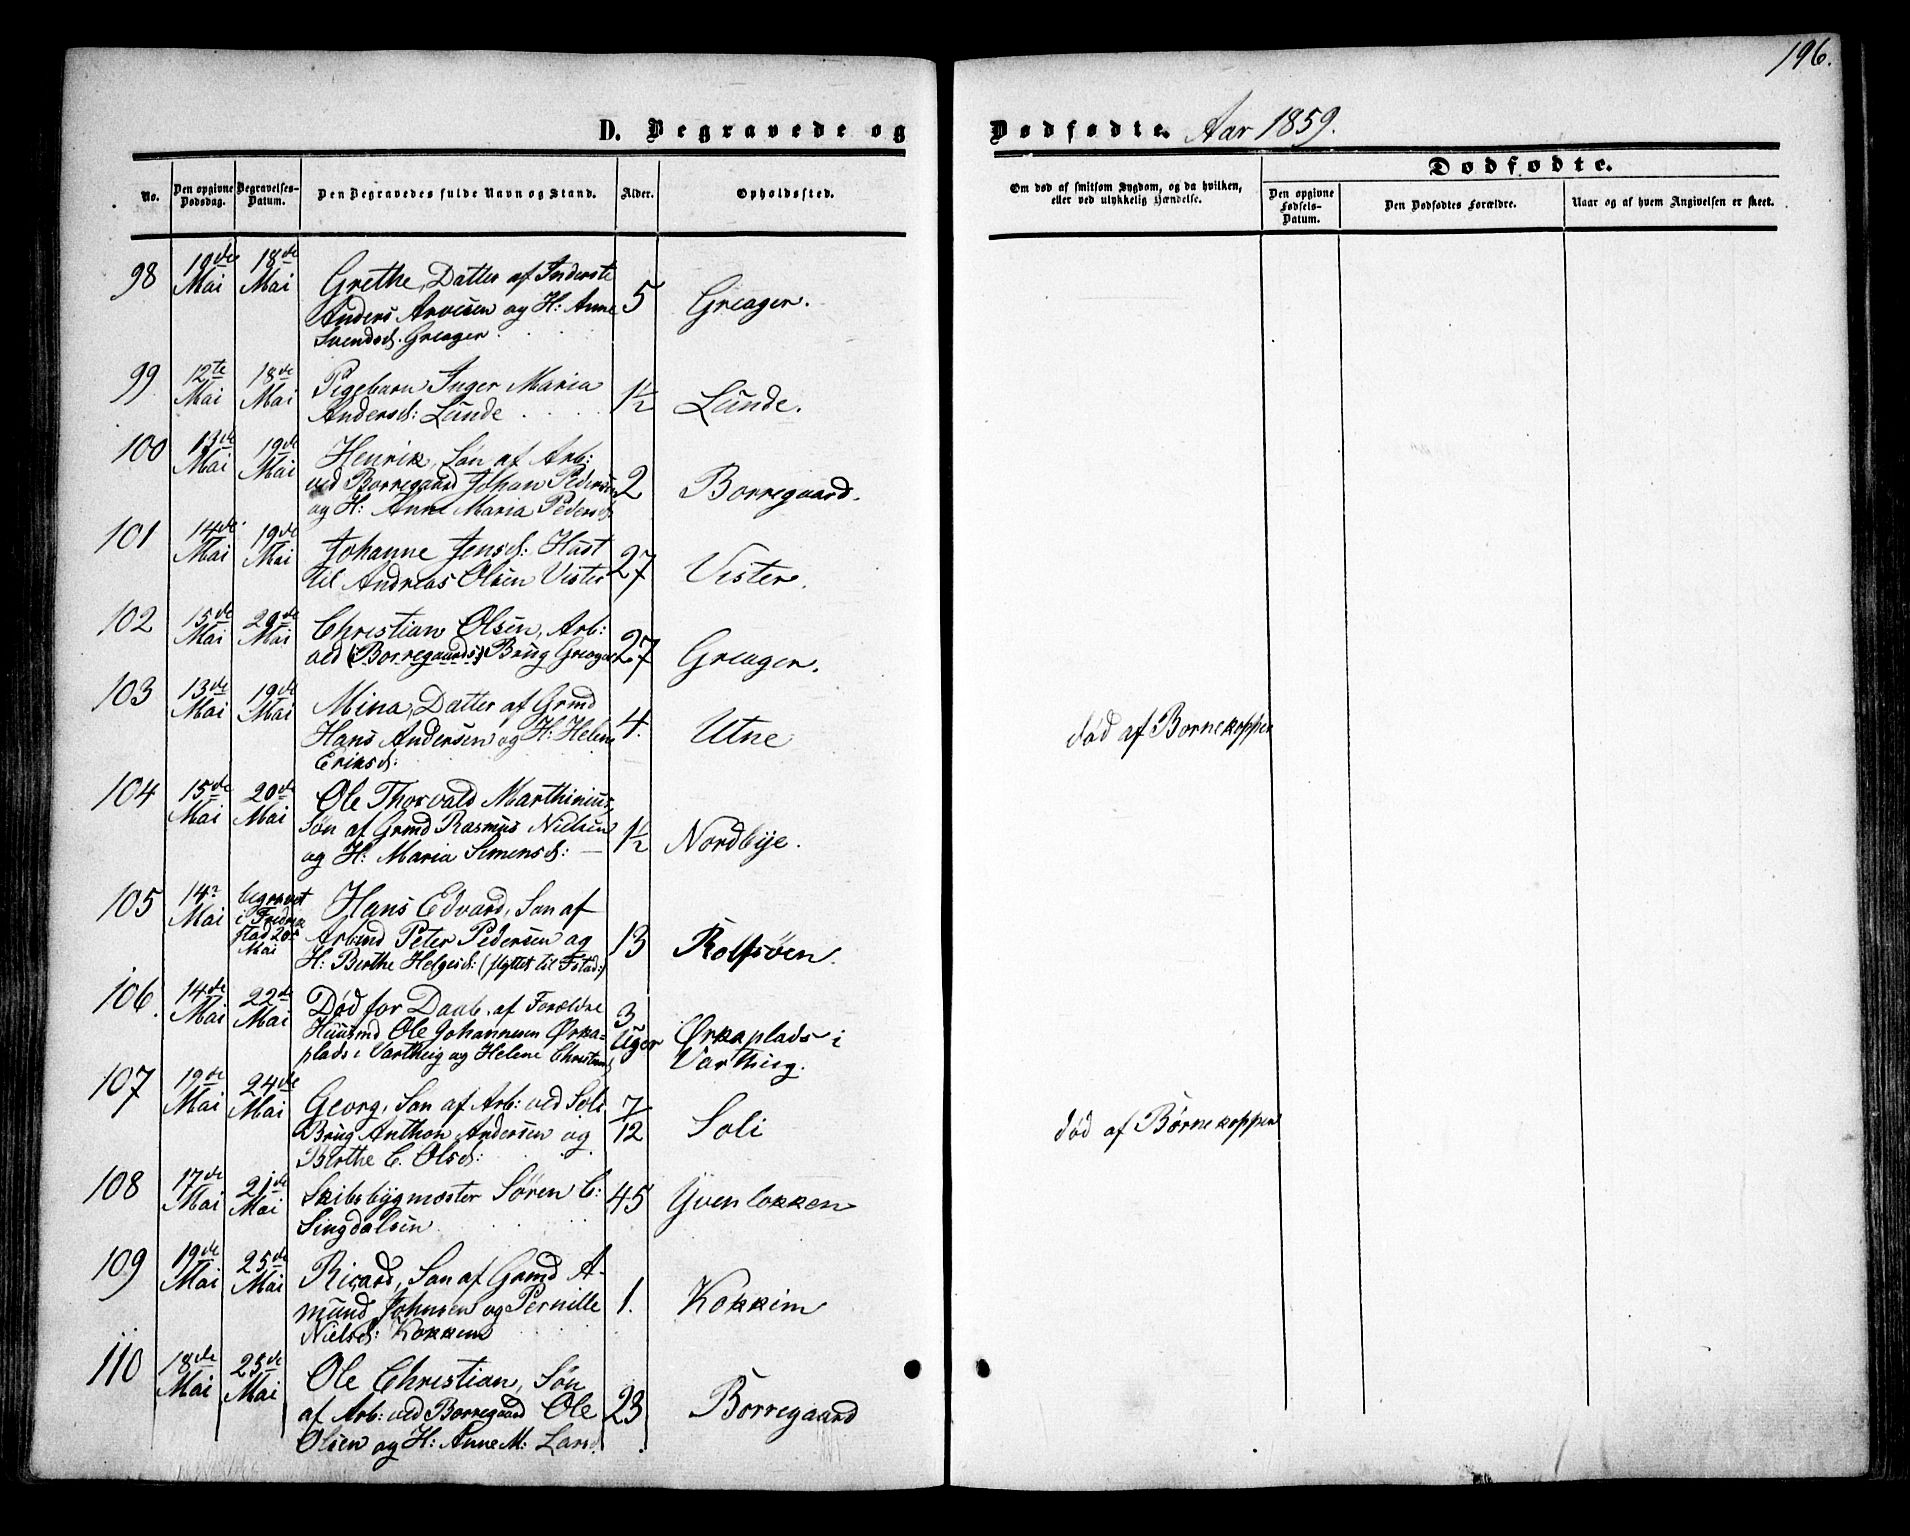 196.
D. Begravede og Dødfødte. Aar 1859.
Dødfødte.
No. | Den opgivne Dødsdag. | Begravelses-Datum. | Den Begravedes fulde Navn og Stand. | Alder. | Opholdssted. | Om død af smitsom Sygdom, og da hvilken, eller ved ulykkelig Hændelse. | Den opgivne Fødsels-Datum. | Den Dødfødtes Forældre. | Naar og af hvem Angivelsen er skeet.
98 10de Mai 18de Mai Grethe, Datter af Inderste
Anders Arvesen og H: Anne 5 Greager.
Svendsd. Greager
99 12te Mai 18de Mai Pigebarn Inger Maria
Andersd: Lunde 1½ Lunde.
100 13de Mai 19de Mai Henrik, Søn af Arb:
ved Borregaard Johan Pedersen 2 Borregaard.
og H: Anne Maria Pedersd:
101 14de Mai 19de Mai Johanne Jensd: Hust
til Andreas Olsen Vister 27 Vister.
102 15de Mai 20de Mai Christian Olsen, Arb:
ved (Borregaards) Brug Greager 27 Greager.
103 13de Mai 19de Mai Mina, Datter af Grmd
Hans Andersen og H: Helene 4. Utne død af Børnekopper
Eriksd:
104 15de Mai 20de Mai Ole Thorvald Marthinius,
Søn af Grmd Rasmus Nielsen 1½ Nordbye.
og H: Maria Simensd:
105 14de Mai begravet i Fredrikstad 20de Mai Hans Edvard, Søn af
Arbmd Peter Pedersen og 13 Rolfsøen.
H: Berthe Helgesd: (flyttet til Fstad:)
106. 14de Mai 22de Mai Død før Daab. af Forældre
Huusmd Ole Johannesen Ørka- 3 Uger Ørkaplads i
plads i Vartheig og Helene Christensd Vartheig.
107 19de Mai 24de Mai Georg, Søn af Arb: ved Soli
Brug Anthon Andersen og 7/12 Soli død af Børnekopper
Berthe C. Olsd:
108 17de Mai 21de Mai Skibsbygmester Søren C: 45 Yvenløkken
Lingdalsen
109 19de Mai 25de Mai Ricard, Søn af Grmd A-
mund Johnsen og Pernille 1. Kokkim
Nielsd: Kokkem
110 18de Mai 25de Mai Ole Christian, Søn
af Arb: ved Borregaard Ole 23 Borregaard
Olsen og H: Anne M: Larsd.